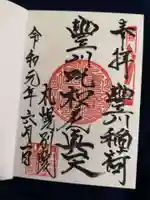 奉拝 豊川稲荷
豊川吒枳尼真天
札幌別院
令和元年六月一日